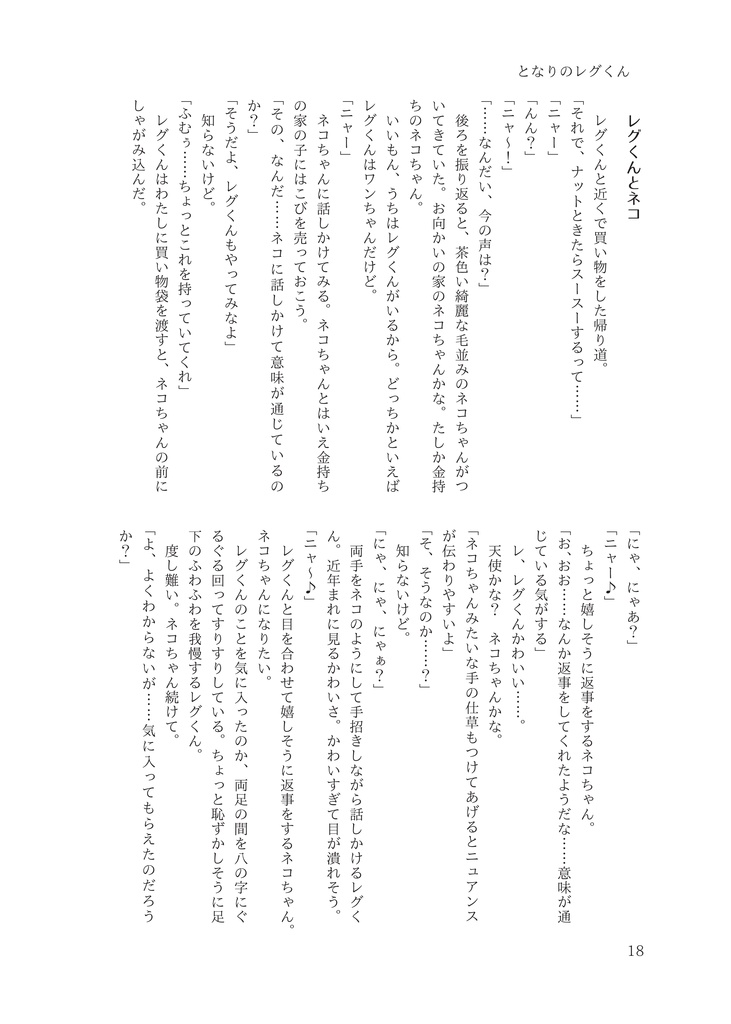 となりのレグくん
レグくんとネコ
　レグくんと近くで買い物をした帰り道。
「それで、ナットときたらスースーするって……」
「ニャー」
「んん？」
「ニャ〜！」
「……なんだい、今の声は？」
　後ろを振り返ると、茶色い綺麗な毛並みのネコちゃんがつ
いてきていた。お向かいの家のネコちゃんかな。たしか金持
ちのネコちゃん。
　いいもん、うちはレグくんがいるから。どっちかといえば
レグくんはワンちゃんだけど。
「ニャー」
　ネコちゃんに話しかけてみる。ネコちゃんとはいえ金持ち
の家の子にはこびを売っておこう。
「その、なんだ……ネコに話しかけて意味が通じているの
か？」
「そうだよ、レグくんもやってみなよ」
　知らないけど。
「ふむぅ……ちょっとこれを持っていてくれ」
　レグくんはわたしに買い物袋を渡すと、ネコちゃんの前に
しゃがみ込んだ。
「にゃ、にゃあ？」
「ニャー♪」
　ちょっと嬉しそうに返事をするネコちゃん。
「お、おお……なんか返事をしてくれたようだな……意味が通
じている気がする」
　レ、レグくんかわいい……。
　天使かな？　ネコちゃんかな。
「ネコちゃんみたいな手の仕草もつけてあげるとニュアンス
が伝わりやすいよ」
「そ、そうなのか……？」
　知らないけど。
「にゃ、にゃ、にゃぁ？」
　両手をネコのようにして手招きしながら話しかけるレグく
ん。近年まれに見るかわいさ。かわいすぎて目が潰れそう。
「ニャ〜♪」
　レグくんと目を合わせて嬉しそうに返事をするネコちゃん。
ネコちゃんになりたい。
　レグくんのことを気に入ったのか、両足の間を八の字にぐ
るぐる回ってすりすりしている。ちょっと恥ずかしそうに足
下のふわふわを我慢するレグくん。
　度し難い。ネコちゃん続けて。
「よ、よくわからないが……気に入ってもらえたのだろう
か？」
18